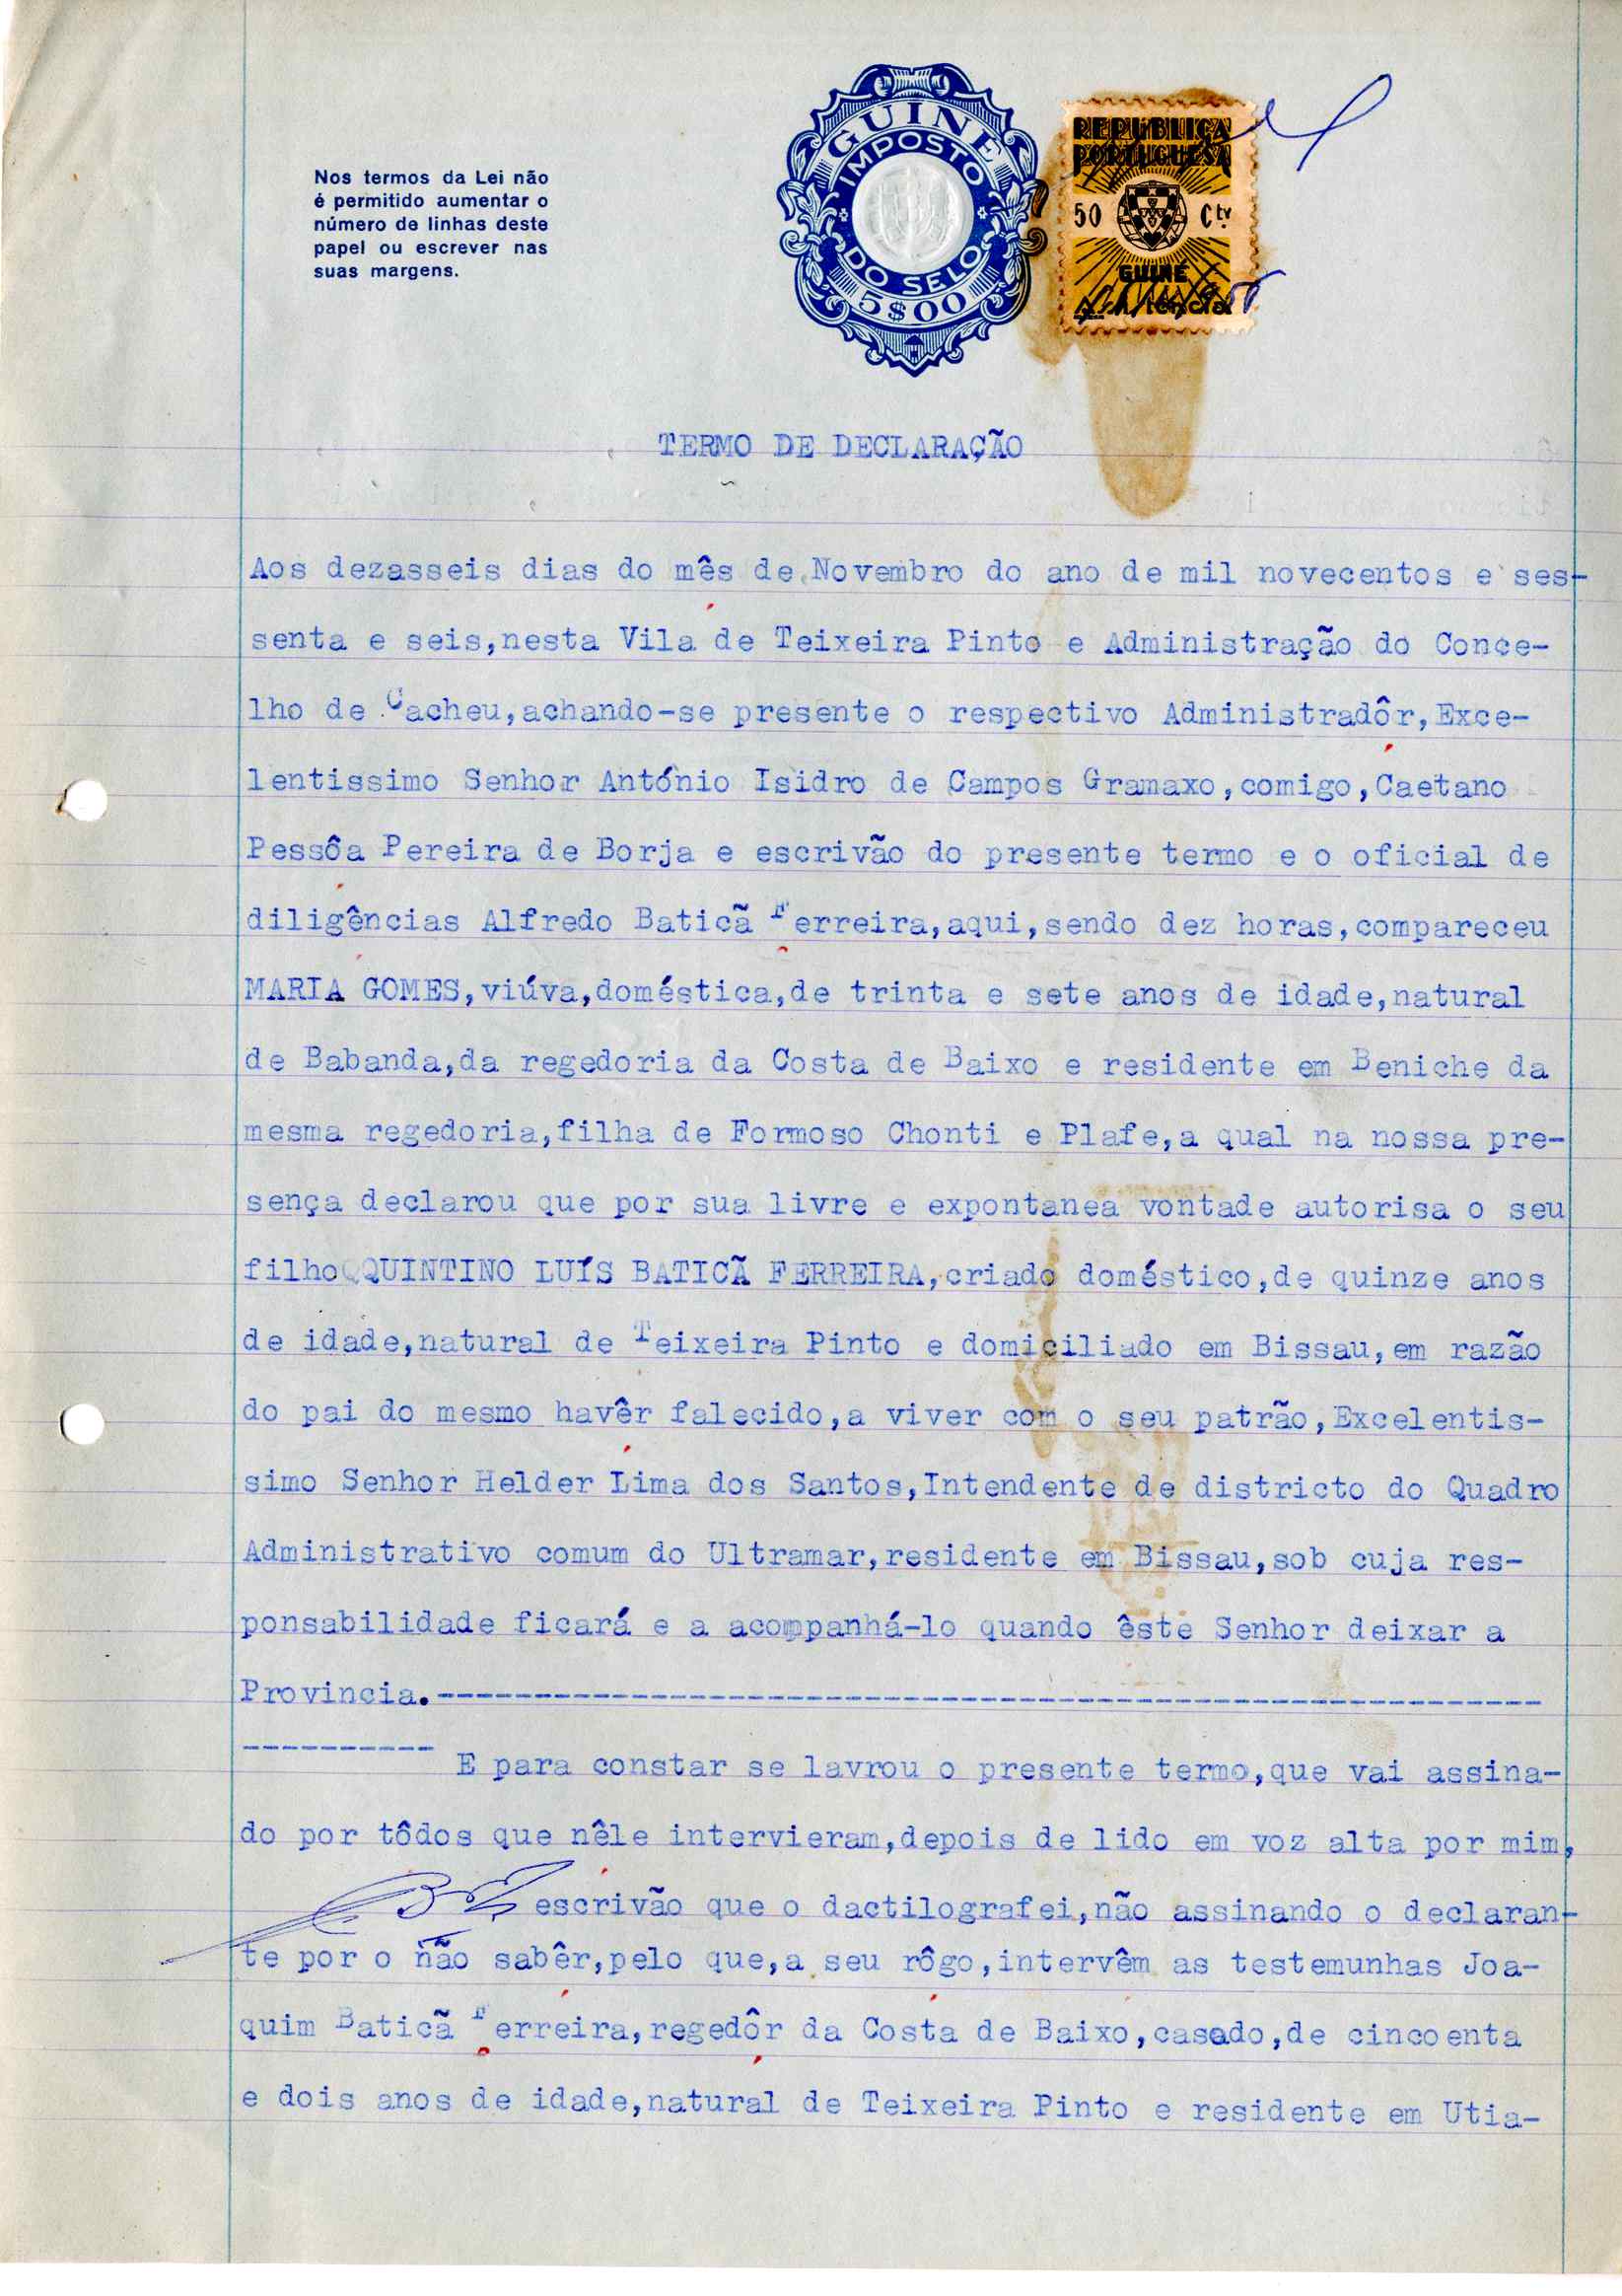 Nos termos da Lei não
é permitido aumentar o
número de linhas deste
papel ou escrever nas
suas margens.
GUINÉ
IMPOSTO
DO SELO
5$00
REPÚBLICA
PORTUGUESA
50 Ctv
GUINÉ
Assistencia
TERMO DE DECLARAÇÃO
Aos dezasseis dias do mês de Novembro do ano de mil novecentos e ses-
senta e seis,nesta Vila de Teixeira Pinto e Administração do Conce-
lho de Cacheu,achando-se presente o respectivo Administradôr,Exce-
lentissimo Senhor António Isidro de Campos Gramaxo,comigo,Caetano
Pessôa Pereira de Borja e escrivão do presente termo e o oficial de
diligências Alfredo Baticã Ferreira,aqui,sendo dez horas,compareceu
MARIA GOMES,viúva,doméstica,de trinta e sete anos de idade,natural
de Babanda,da regedoria da Costa de Baixo e residente em Beniche da
mesma regedoria,filha de Formoso Chonti e Plafe,a qual na nossa pre-
sença declarou que por sua livre e expontanea vontade autorisa o seu
filho QUINTINO LUÍS BATICÃ FERREIRA,criado doméstico,de quinze anos
de idade,natural de Teixeira Pinto e domiciliado em Bissau,em razão
do pai do mesmo havêr falecido,a viver com o seu patrão,Excelentis-
simo Senhor Helder Lima dos Santos,Intendente de districto do Quadro
Administrativo comum do Ultramar,residente em Bissau,sob cuja res-
ponsabilidade ficará e a acompanhá-lo quando êste Senhor deixar a
Provincia.-------------------------------------------------------
---------- E para constar se lavrou o presente termo,que vai assina-
do por tôdos que nêle intervieram,depois de lido em voz alta por mim,
escrivão que o dactilografei,não assinando o declaran-
te por o não sabêr,pelo que,a seu rôgo,intervêm as testemunhas Joa-
quim Baticã Ferreira,regedôr da Costa de Baixo,casado,de cincoenta
e dois anos de idade,natural de Teixeira Pinto e residente em Utia-